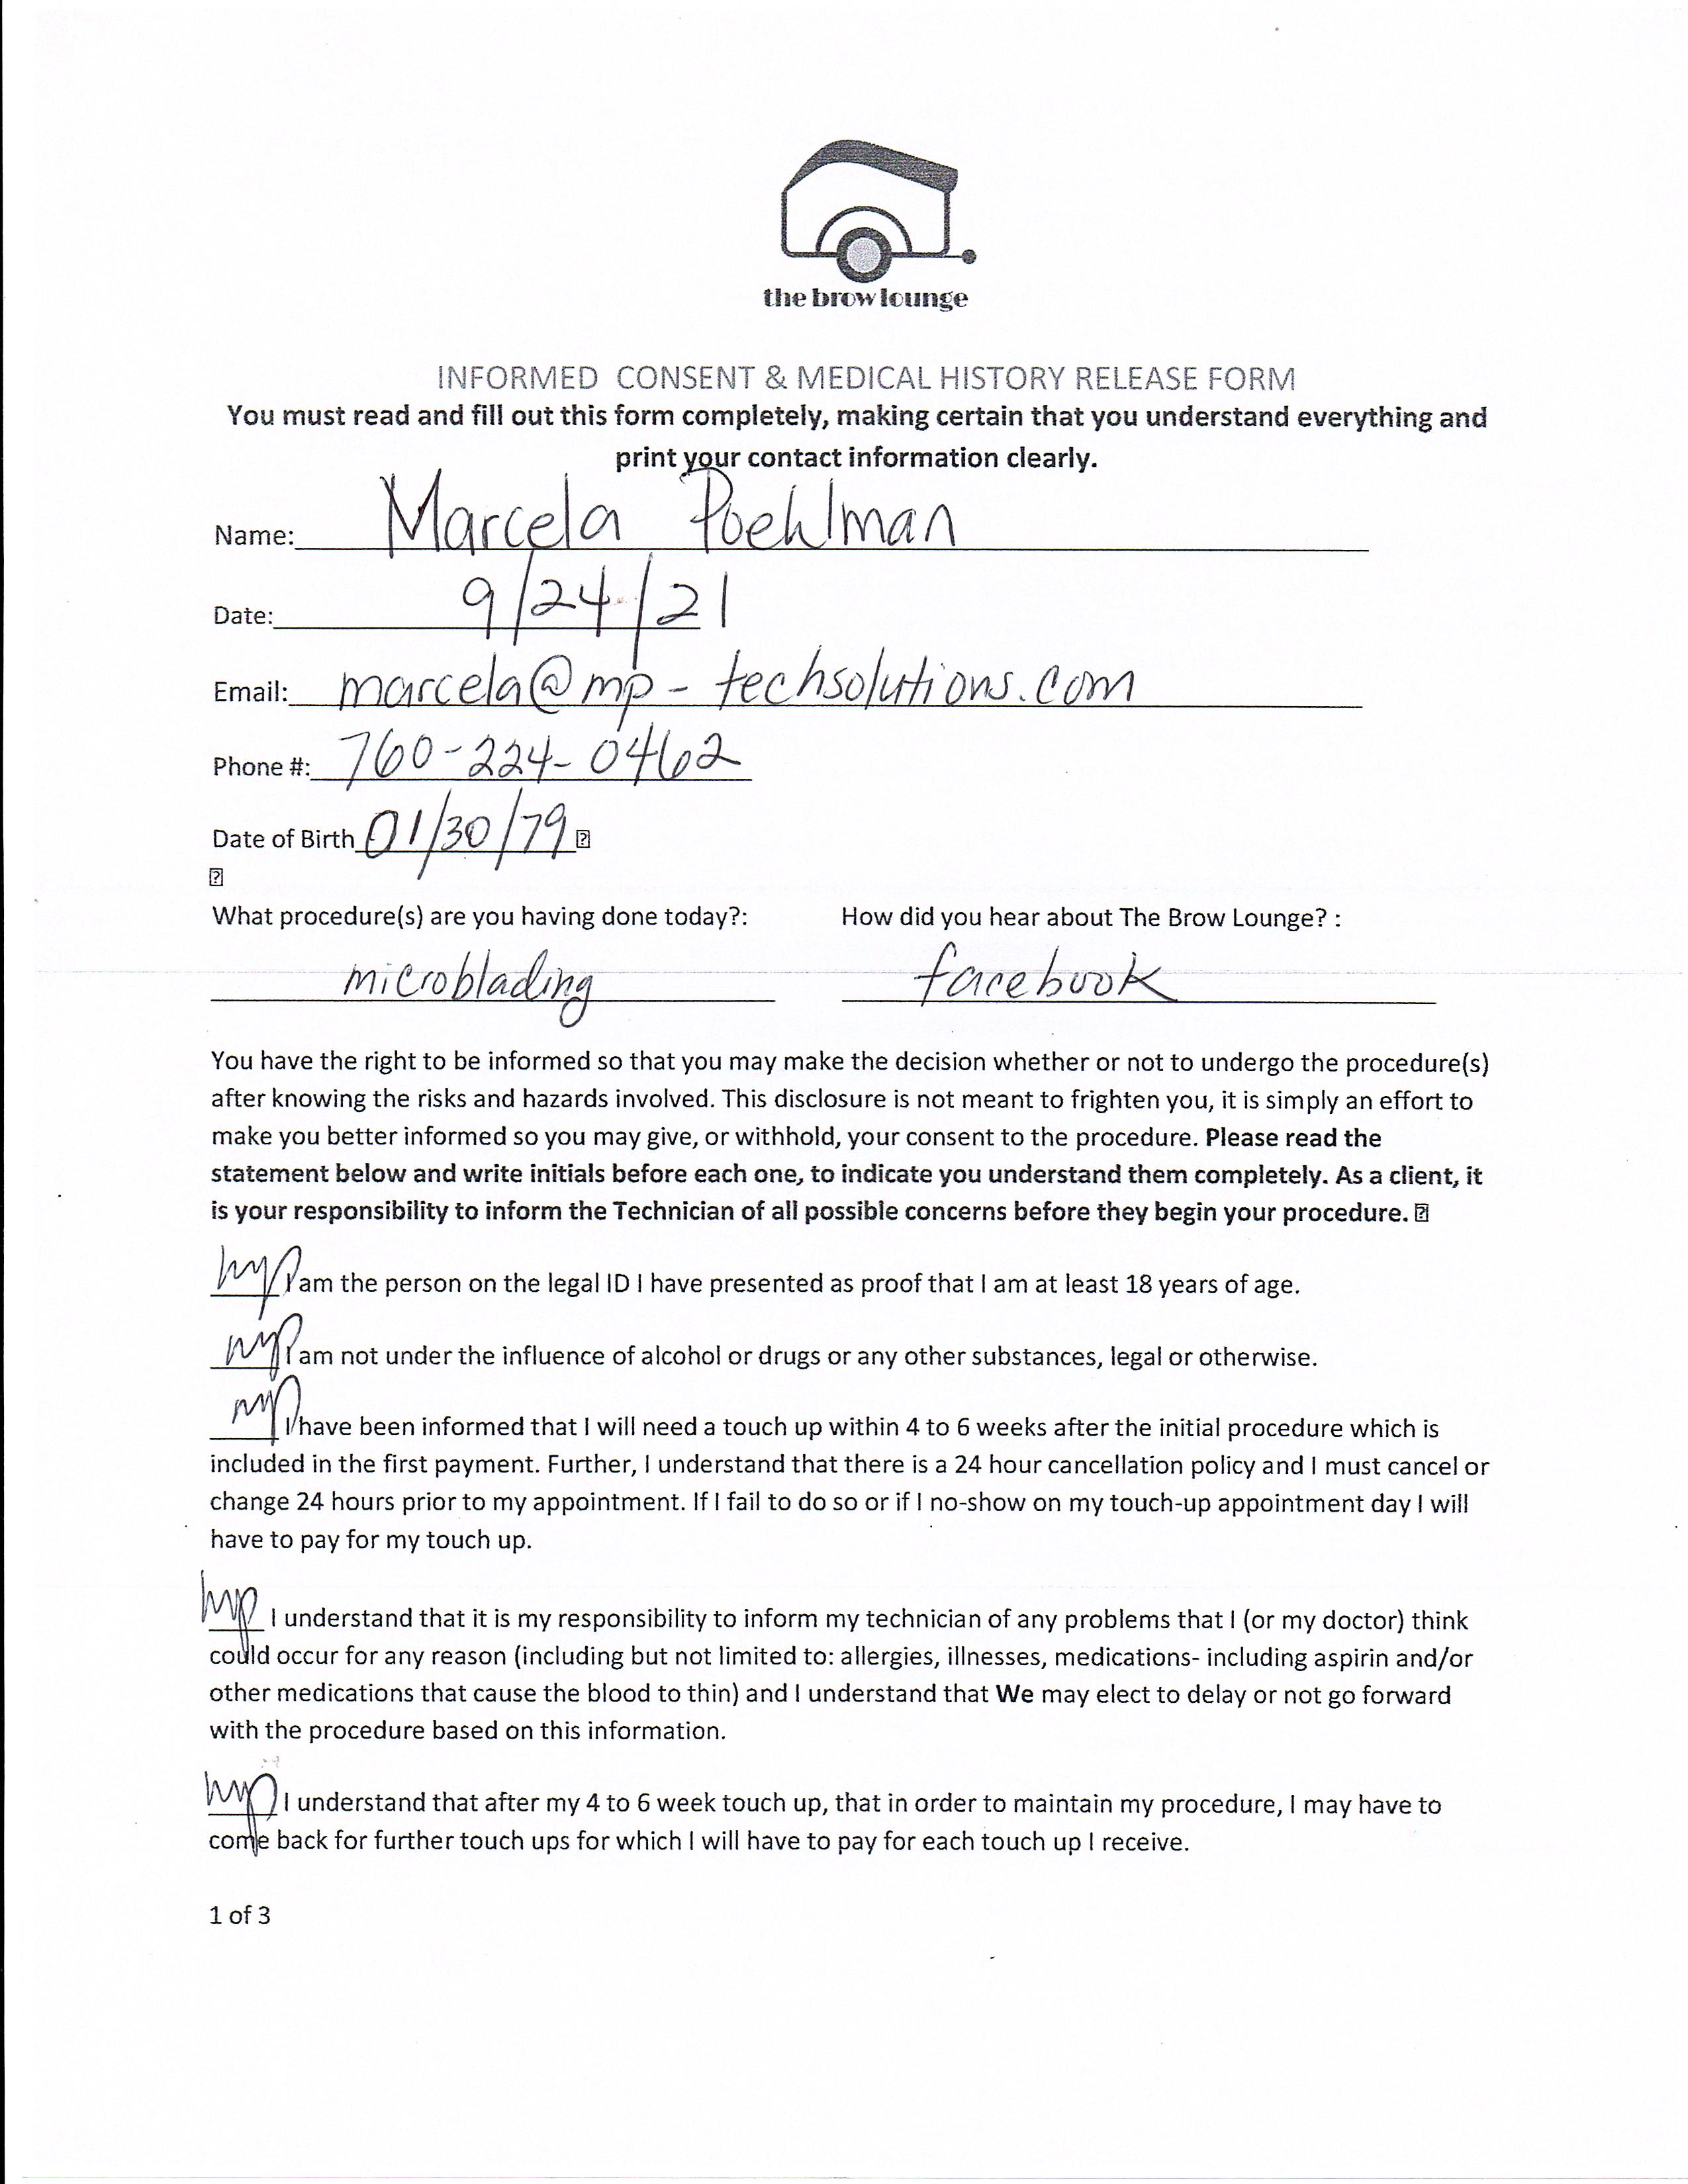 the brow lounge
INFORMED CONSENT & MEDICAL HISTORY RELEASE FORM
You must read and fill out this form completely, making certain that you understand everything and
print your contact information clearly.
Name: Marcela Poehlman
Date: 9/24/21
Email: marcela@mp-techsolutions.com
Phone #: 760-224-0462
Date of Birth 01/30/79
What procedure(s) are you having done today?: How did you hear about The Brow Lounge? :
microblading facebook
You have the right to be informed so that you may make the decision whether or not to undergo the procedure(s)
after knowing the risks and hazards involved. This disclosure is not meant to frighten you, it is simply an effort to
make you better informed so you may give, or withhold, your consent to the procedure. Please read the
statement below and write initials before each one, to indicate you understand them completely. As a client, it
is your responsibility to inform the Technician of all possible concerns before they begin your procedure.
mp I am the person on the legal ID I have presented as proof that I am at least 18 years of age.
mp I am not under the influence of alcohol or drugs or any other substances, legal or otherwise.
mp I have been informed that I will need a touch up within 4 to 6 weeks after the initial procedure which is
included in the first payment. Further, I understand that there is a 24 hour cancellation policy and I must cancel or
change 24 hours prior to my appointment. If I fail to do so or if I no-show on my touch-up appointment day I will
have to pay for my touch up.
mp I understand that it is my responsibility to inform my technician of any problems that I (or my doctor) think
could occur for any reason (including but not limited to: allergies, illnesses, medications- including aspirin and/or
other medications that cause the blood to thin) and I understand that We may elect to delay or not go forward
with the procedure based on this information.
mp I understand that after my 4 to 6 week touch up, that in order to maintain my procedure, I may have to
come back for further touch ups for which I will have to pay for each touch up I receive.
1 of 3